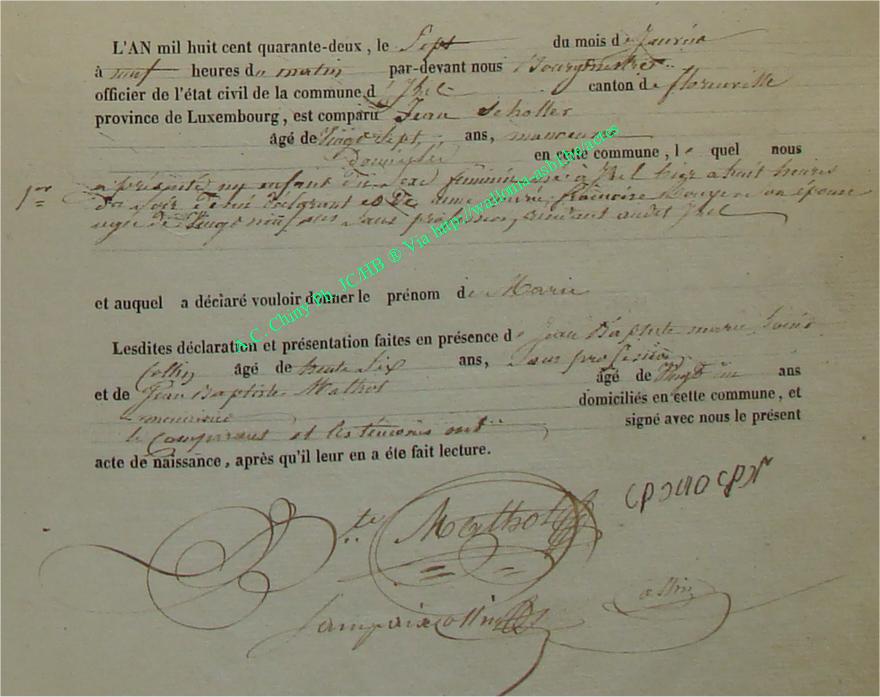 L'AN mil huit cent quarante-deux, le Sept du mois de Janvier
à neuf heures du matin par-devant nous Bourgmestre
officier de l'état civil de la commune d'Izel canton de florenville
province de Luxembourg, est comparu Jean Scholler
âgé de Vingt Sept ans, manoeuvre
Domicilié en cette commune, lequel nous
1er a présenté un enfant du Sexe féminin né à Izel hier à huit heures
du soir de lui déclarant et de marie françoise son épouse
agée de Vingt neuf ans Sans profession, résidant audit Izel
et auquel a déclaré vouloir donner le prénom de Marie
Lesdites déclaration et présentation faites en présence de Jean Baptiste marie
Collin âgé de trente Six ans, Sans profession
et de Jean Baptiste Mathot âgé de Vingt un ans
menuisier domiciliés en cette commune, et
le Comparant et les témoins ont signé avec nous le présent
acte de naissance, après qu'il leur en a éte fait lecture.
Bte Mathot
Collin
A.C. Chiny Ph. JC/HB ® Via http://wallonia-asbl.eu/actes